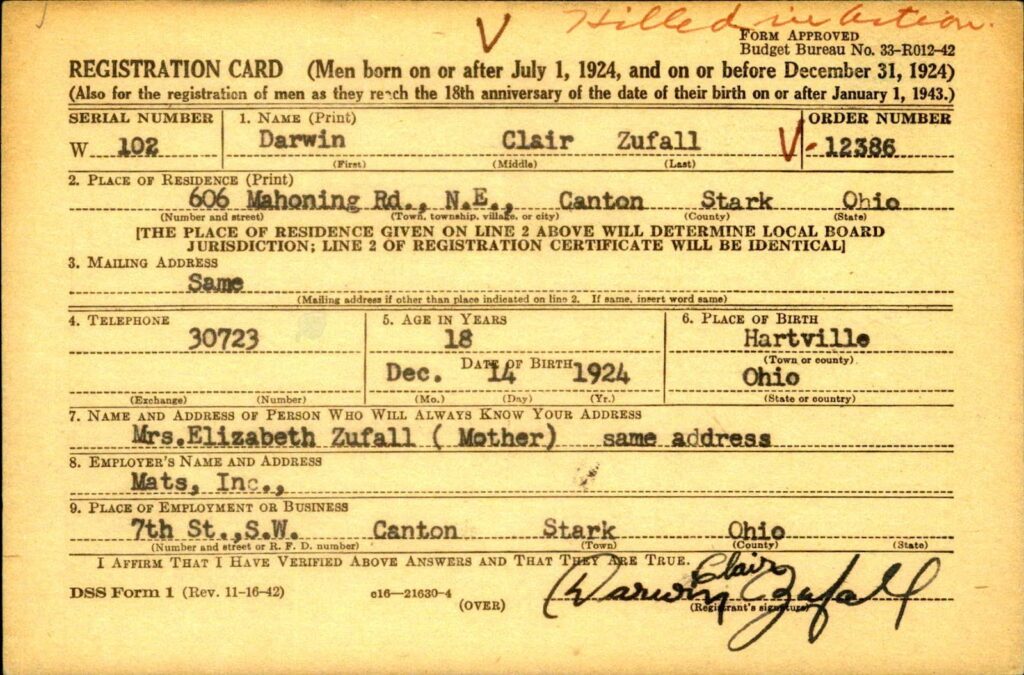 V Killed in Action.
FORM APPROVED
Budget Bureau No. 33-R012-42
REGISTRATION CARD (Men born on or after July 1, 1924, and on or before December 31, 1924)
(Also for the registration of men as they reach the 18th anniversary of the date of their birth on or after January 1, 1943.)
SERIAL NUMBER 1. NAME (Print) ORDER NUMBER
W 102 Darwin Clair Zufall V-12386
(First) (Middle) (Last)
2. PLACE OF RESIDENCE (Print)
606 Mahoning Rd., N.E., Canton Stark Ohio
(Number and street) (Town, township, village, or city) (County) (State)
[THE PLACE OF RESIDENCE GIVEN ON LINE 2 ABOVE WILL DETERMINE LOCAL BOARD
JURISDICTION; LINE 2 OF REGISTRATION CERTIFICATE WILL BE IDENTICAL]
3. MAILING ADDRESS
Same
(Mailing address if other than place indicated on line 2. If same, insert word same)
4. TELEPHONE 5. AGE IN YEARS 6. PLACE OF BIRTH
30723 18 Hartville
(Town or county)
DATE OF BIRTH
Dec. 14 1924 Ohio
(Exchange) (Number) (Mo.) (Day) (Yr.) (State or country)
7. NAME AND ADDRESS OF PERSON WHO WILL ALWAYS KNOW YOUR ADDRESS
Mrs.Elizabeth Zufall ( Mother) same address
8. EMPLOYER'S NAME AND ADDRESS
Mats, Inc.,
9. PLACE OF EMPLOYMENT OR BUSINESS
7th St.,S.W. Canton Stark Ohio
(Number and street or R. F. D. number) (Town) (County) (State)
I AFFIRM THAT I HAVE VERIFIED ABOVE ANSWERS AND THAT THEY ARE TRUE.
Darwin Clair Zufall
DSS Form 1 (Rev. 11-16-42) c16—21630-4 (OVER) (Registrant's signature)